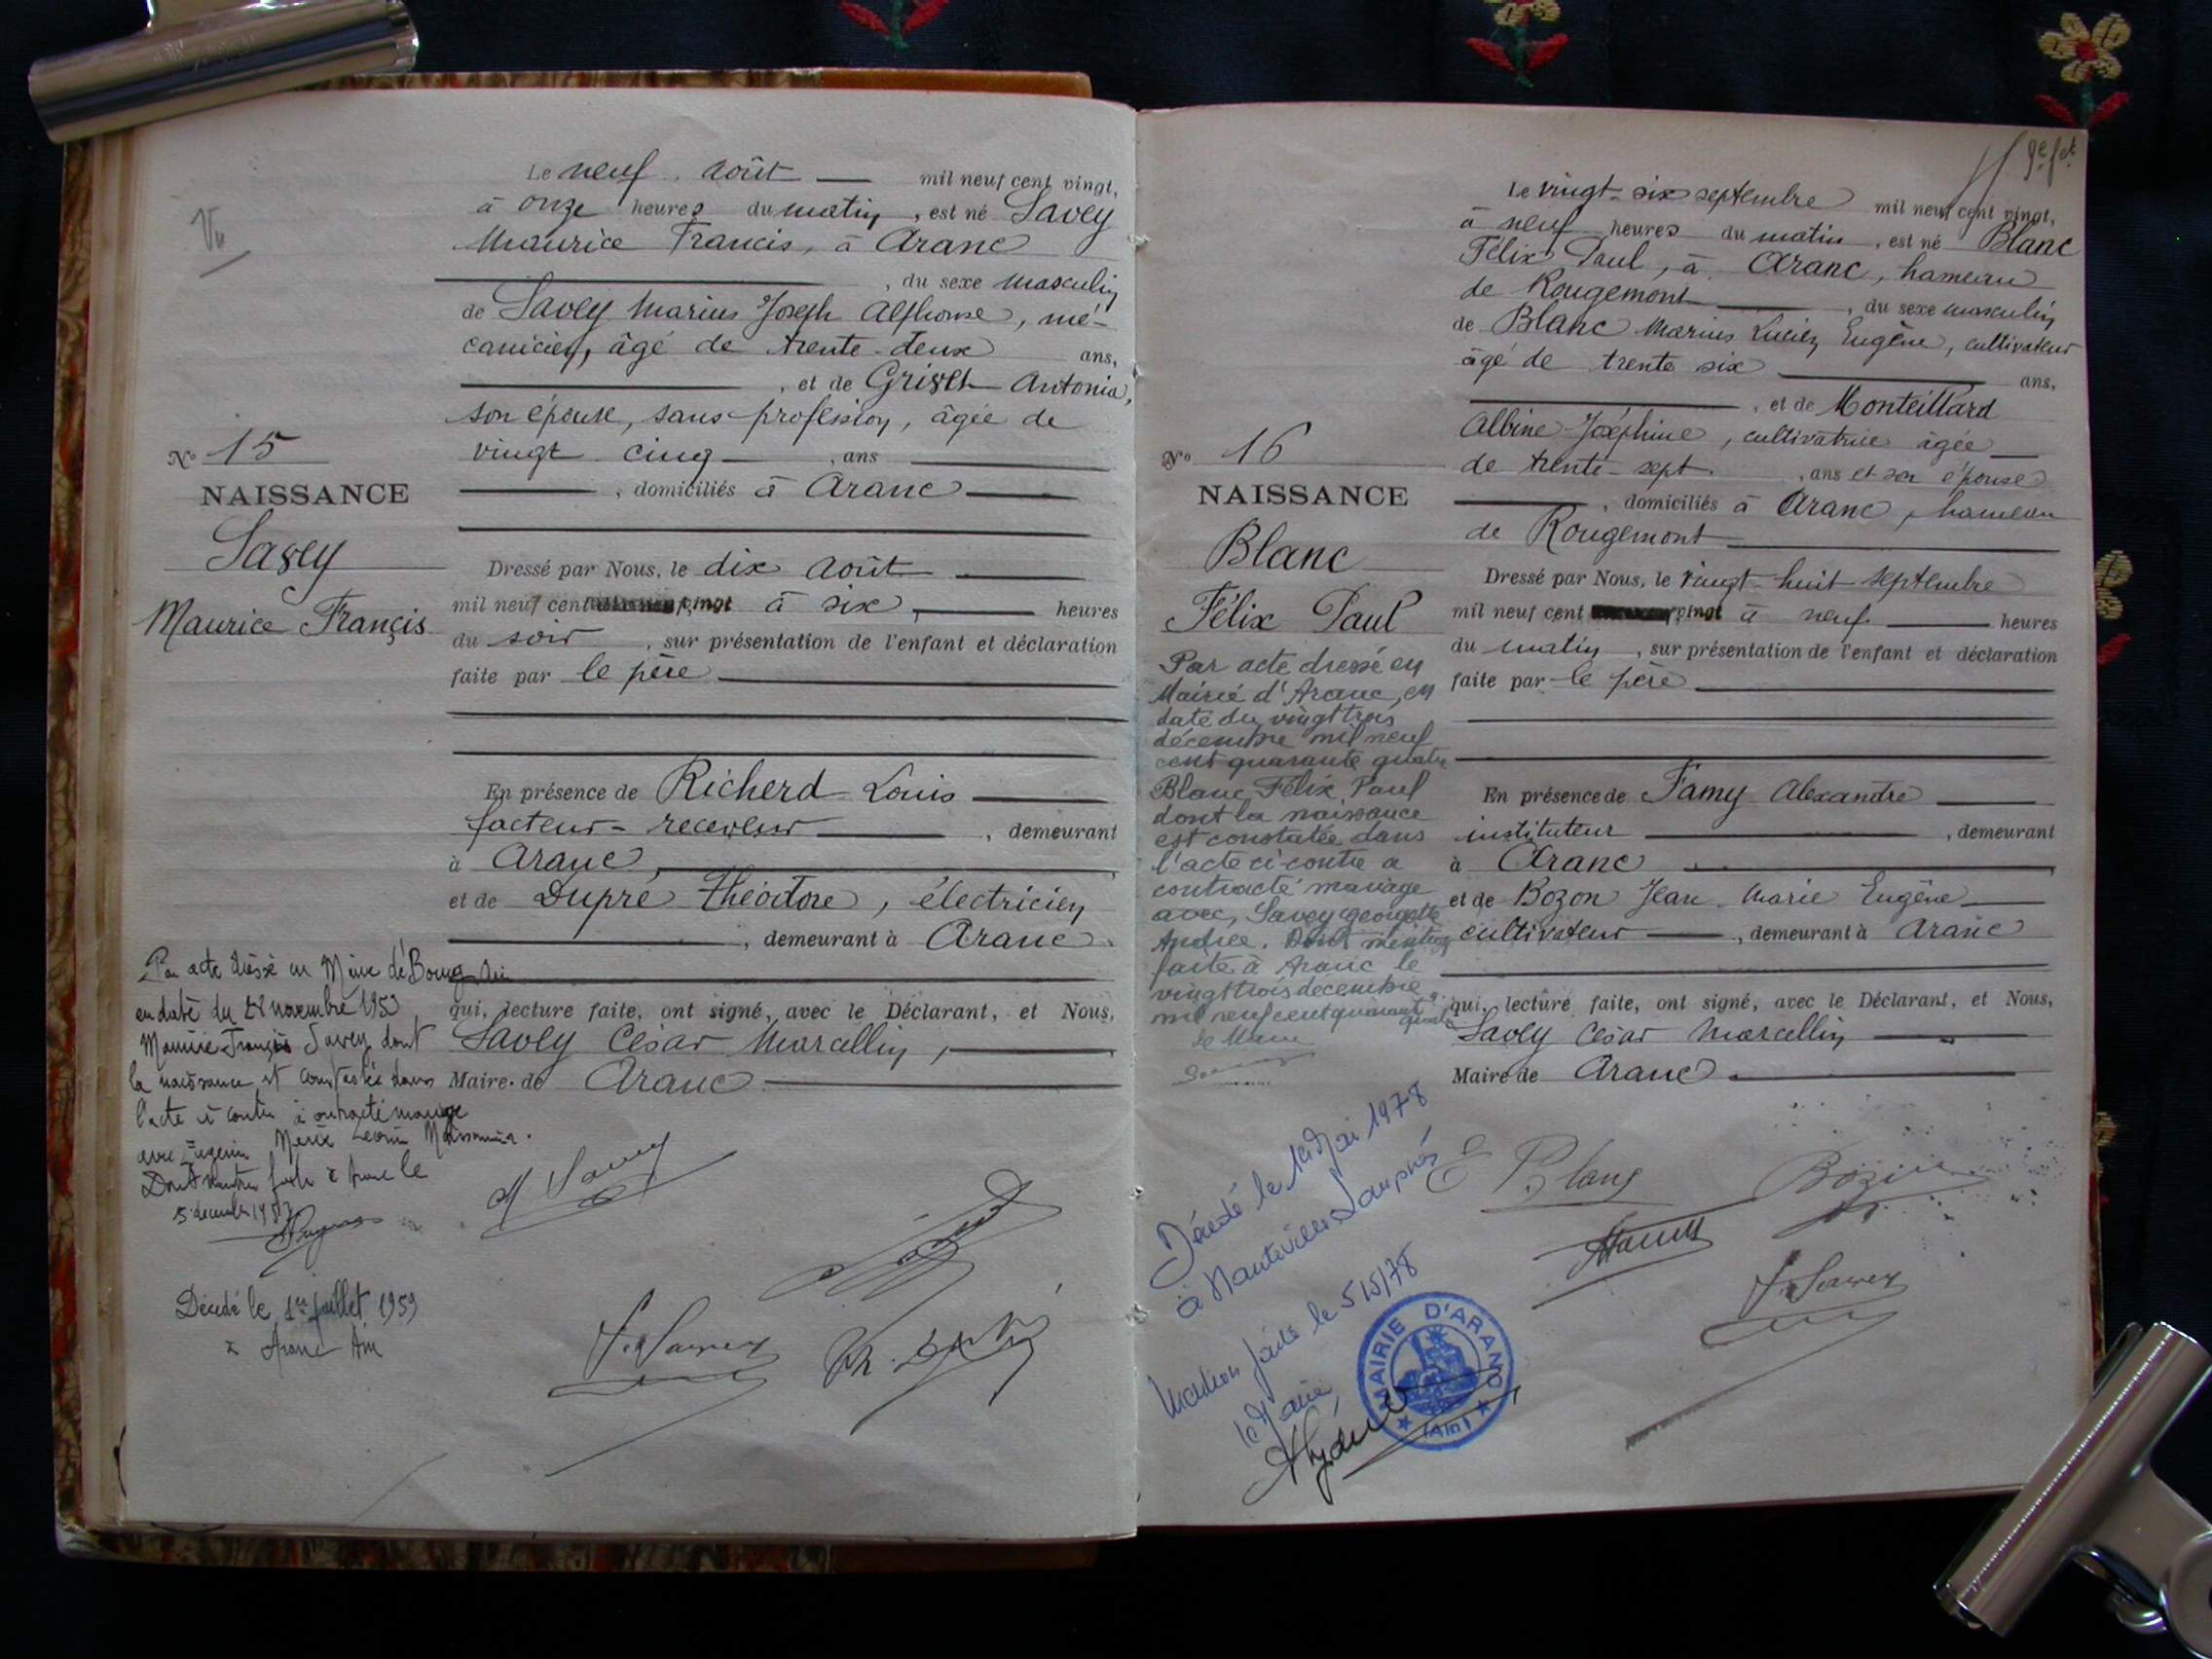 Vu
Le neuf août mil neuf cent vingt,
à onze heures du matin, est né Savey
Maurice Francis, à Aranc
, du sexe masculin
de Savey Marius Joseph Alphonse, mé-
canicien, âgé de trente-deux ans,
, et de Griset Antonia,
son épouse, sans profession, âgée de
vingt cinq, ans
, domiciliés à Aranc
No 15
NAISSANCE
Savey
Maurice Françis
Dressé par Nous, le dix août
mil neuf cent vingt à six, heures
du soir, sur présentation de l'enfant et déclaration
faite par le père
En présence de Richerd Louis
facteur-receveur, demeurant
à Aranc,
et de Dupré Théodore, électricien
, demeurant à Aranc.
qui, lecture faite, ont signé, avec le Déclarant, et Nous,
Savey César Marcellin,
Maire de Aranc
Par acte dressé en Mairie de Bourg Ain
en date du novembre 1953
Maurice François Savey dont
la naissance est constatée dans
l'acte ci contre à contracté mariage
avec Marie
Dont mention faite à Aranc le
5 decembre
Décédé le 1er juillet 1959
à Aranc Ain
M Savey
J. Savey
Le vingt-six septembre mil neuf cent vingt,
à neuf heures du matin, est né Blanc
Félix Paul, à Aranc, hameau
de Rougemont, du sexe masculin
de Blanc Marius Lucien Eugène, cultivateur
âgé de trente six ans,
, et de Monteillard
Albine Joséphine, cultivatrice âgée
de trente-sept, ans et son épouse
, domiciliés à Aranc, hameau
de Rougemont
No 16
NAISSANCE
Blanc
Félix Paul
Dressé par Nous, le vingt-huit septembre
mil neuf cent vingt à neuf heures
du matin, sur présentation de l'enfant et déclaration
faite par le père
En présence de Famy Alexandre
instituteur, demeurant
à Aranc
et de Bozon Jean Marie Eugène
cultivateur, demeurant à Aranc
qui, lecture faite, ont signé, avec le Déclarant, et Nous,
Savey César Marcellin
Maire de Aranc
Par acte dressé en
Mairie d'Aranc, en
date du vingt trois
décembre mil neuf
cent quarante quatre
Blanc Félix Paul
dont la naissance
est constatée dans
l'acte ci-contre a
contracté mariage
avec Savey Georgette
Andrée. Dont mention
faite à Aranc le
vingt trois décembre
mil neuf cent quarante quatre
Le Maire
Décédé le 1er Mai 1978
à Hauteville-Lompnès
Mention faite le 5/5/78
le Maire,
MAIRIE D'ARANC
(Ain)
E Blanc
Bozon
Famy
J. Savey